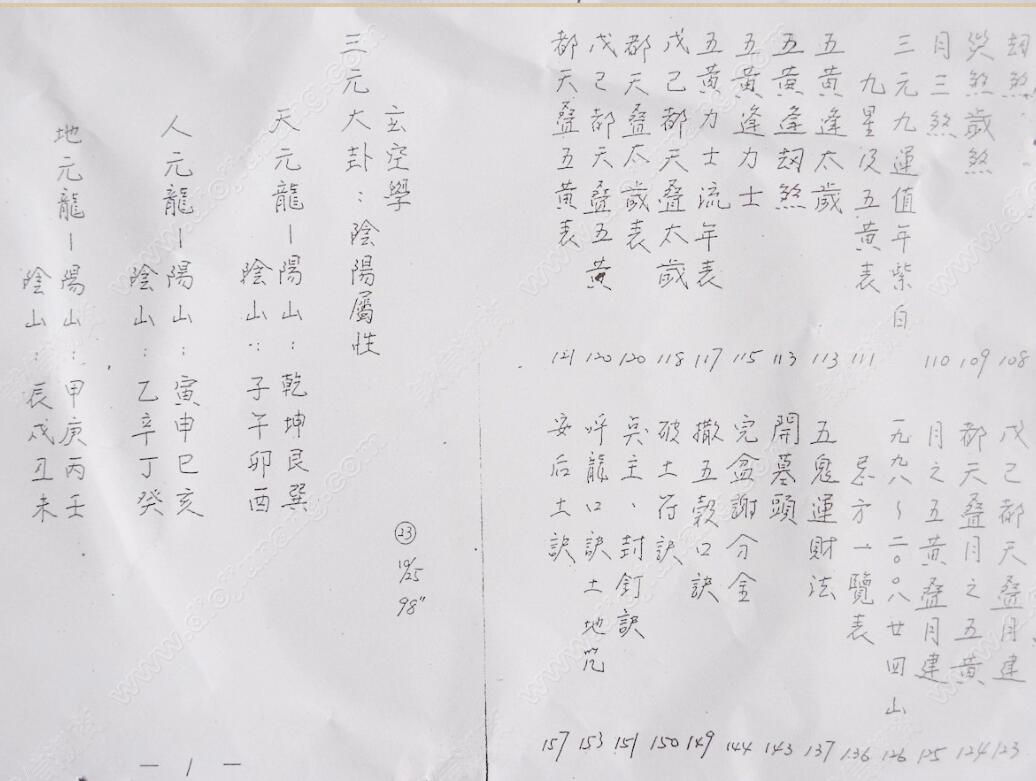 刼煞 108
災煞歲煞 109
月三煞 110
三元九運值年紫白
九星及五黃表 111
五黃逢太歲 113
五黃逢刼煞 113
五黃逢力士 115
五黃力士流年表 117
戊己都天叠太歲 118
都天叠太歲表 120
戊己都天叠五黃 120
都天叠五黃表 121
戊己都天叠月建 123
都天叠月之五黃 124
月之五黃叠月建 125
一九九八~二〇〇八廿四山 126
忌方一覽表 136
五鬼運財法 137
開墓頭 143
完盆謝分金 144
撒五穀口訣 149
破土符訣 150
奌主、封釘訣 151
呼龍口訣土地咒 153
安后土訣 157
玄空學
㉓
10/25
98"
三元大卦:陰陽屬性
天元龍-陽山:乾坤艮巽
陰山:子午卯酉
人元龍-陽山:寅申巳亥
陰山:乙辛丁癸
地元龍-陽山:甲庚丙壬
陰山:辰戌丑未
-1-